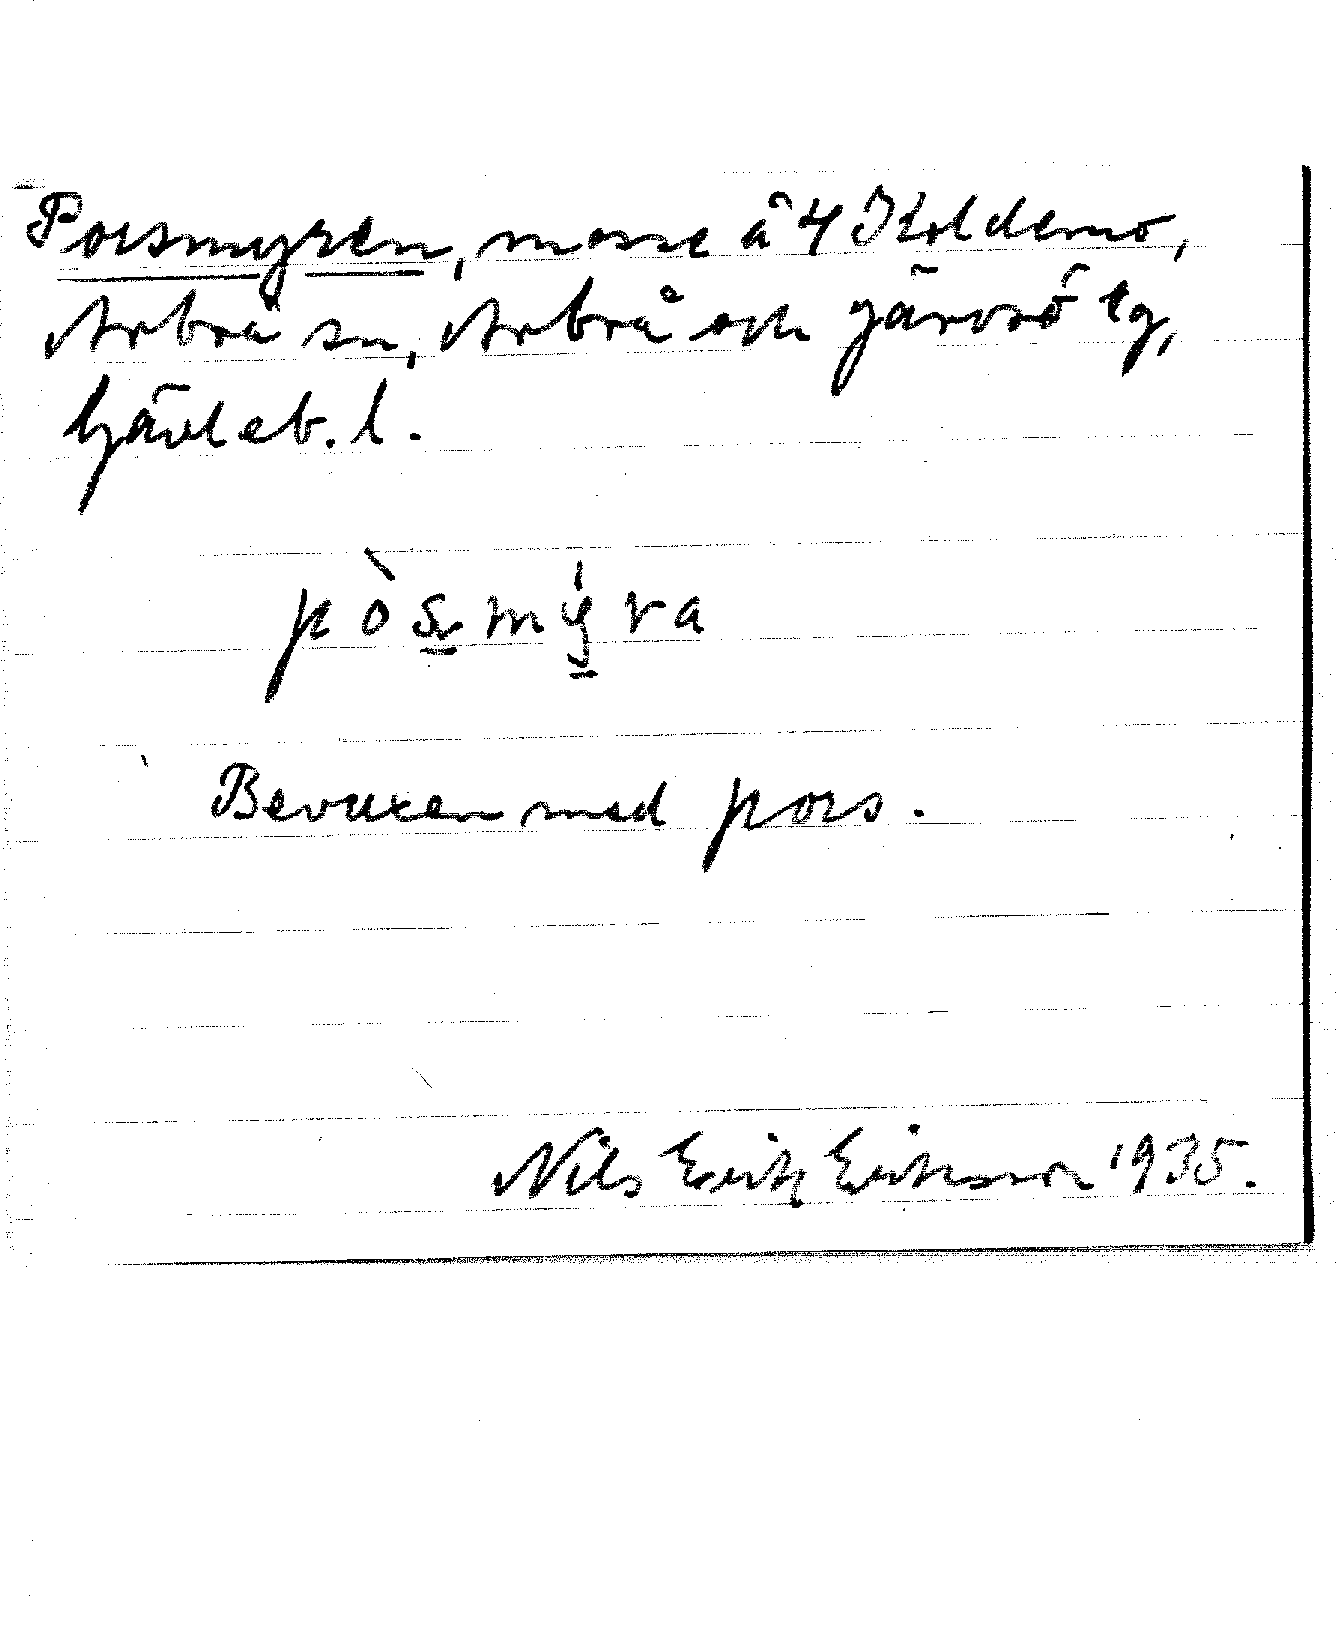 Porsmyren, mosse å 4 Koldemo,
Arbrå sn, Arbrå och Järvsö tg,
Gävleb. l.
pòsmy̍ra
Bevuxen med pors.
Nils Erik Eriksson 1935.